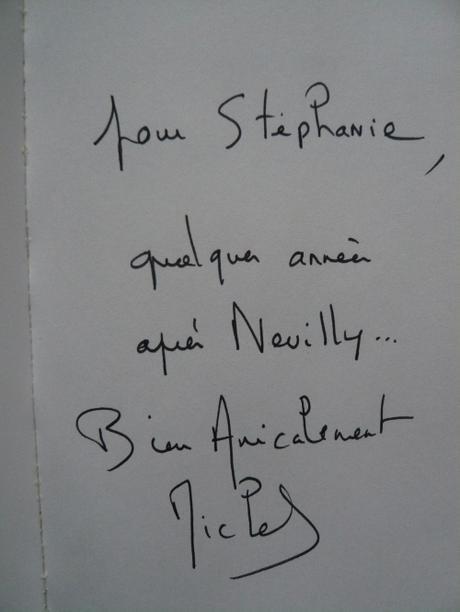 pour Stéphanie,
quelques années
après Neuilly...
Bien Amicalement
Michel